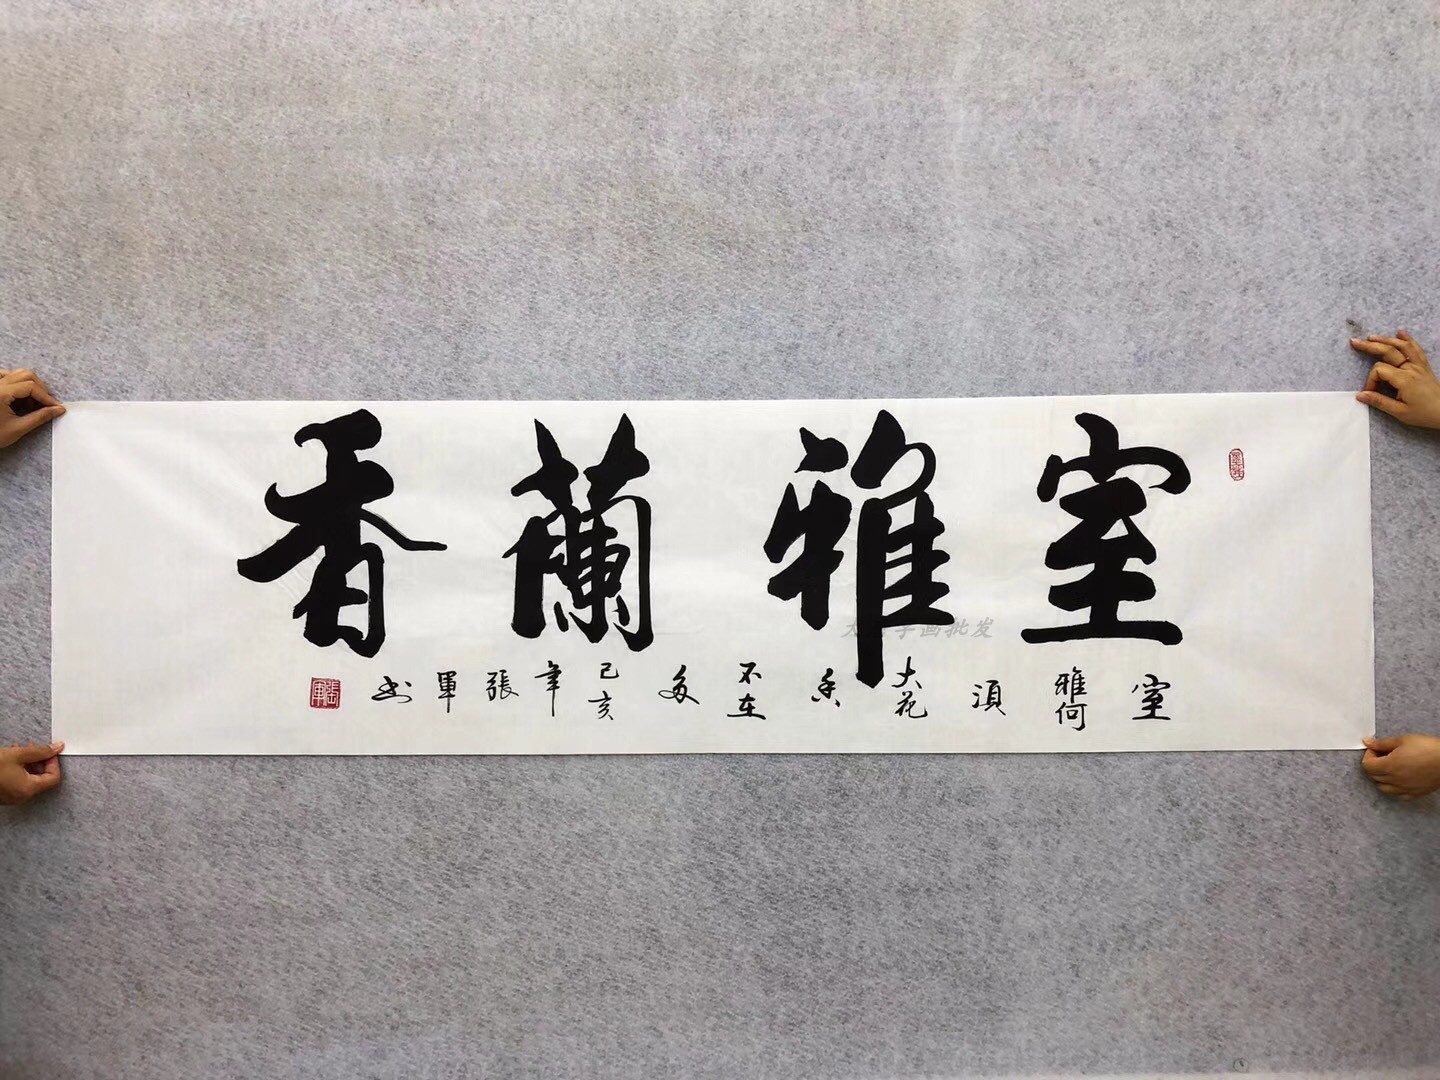 室雅蘭香
室雅何須大花香不在多己亥年張軍书
張軍
字画批发